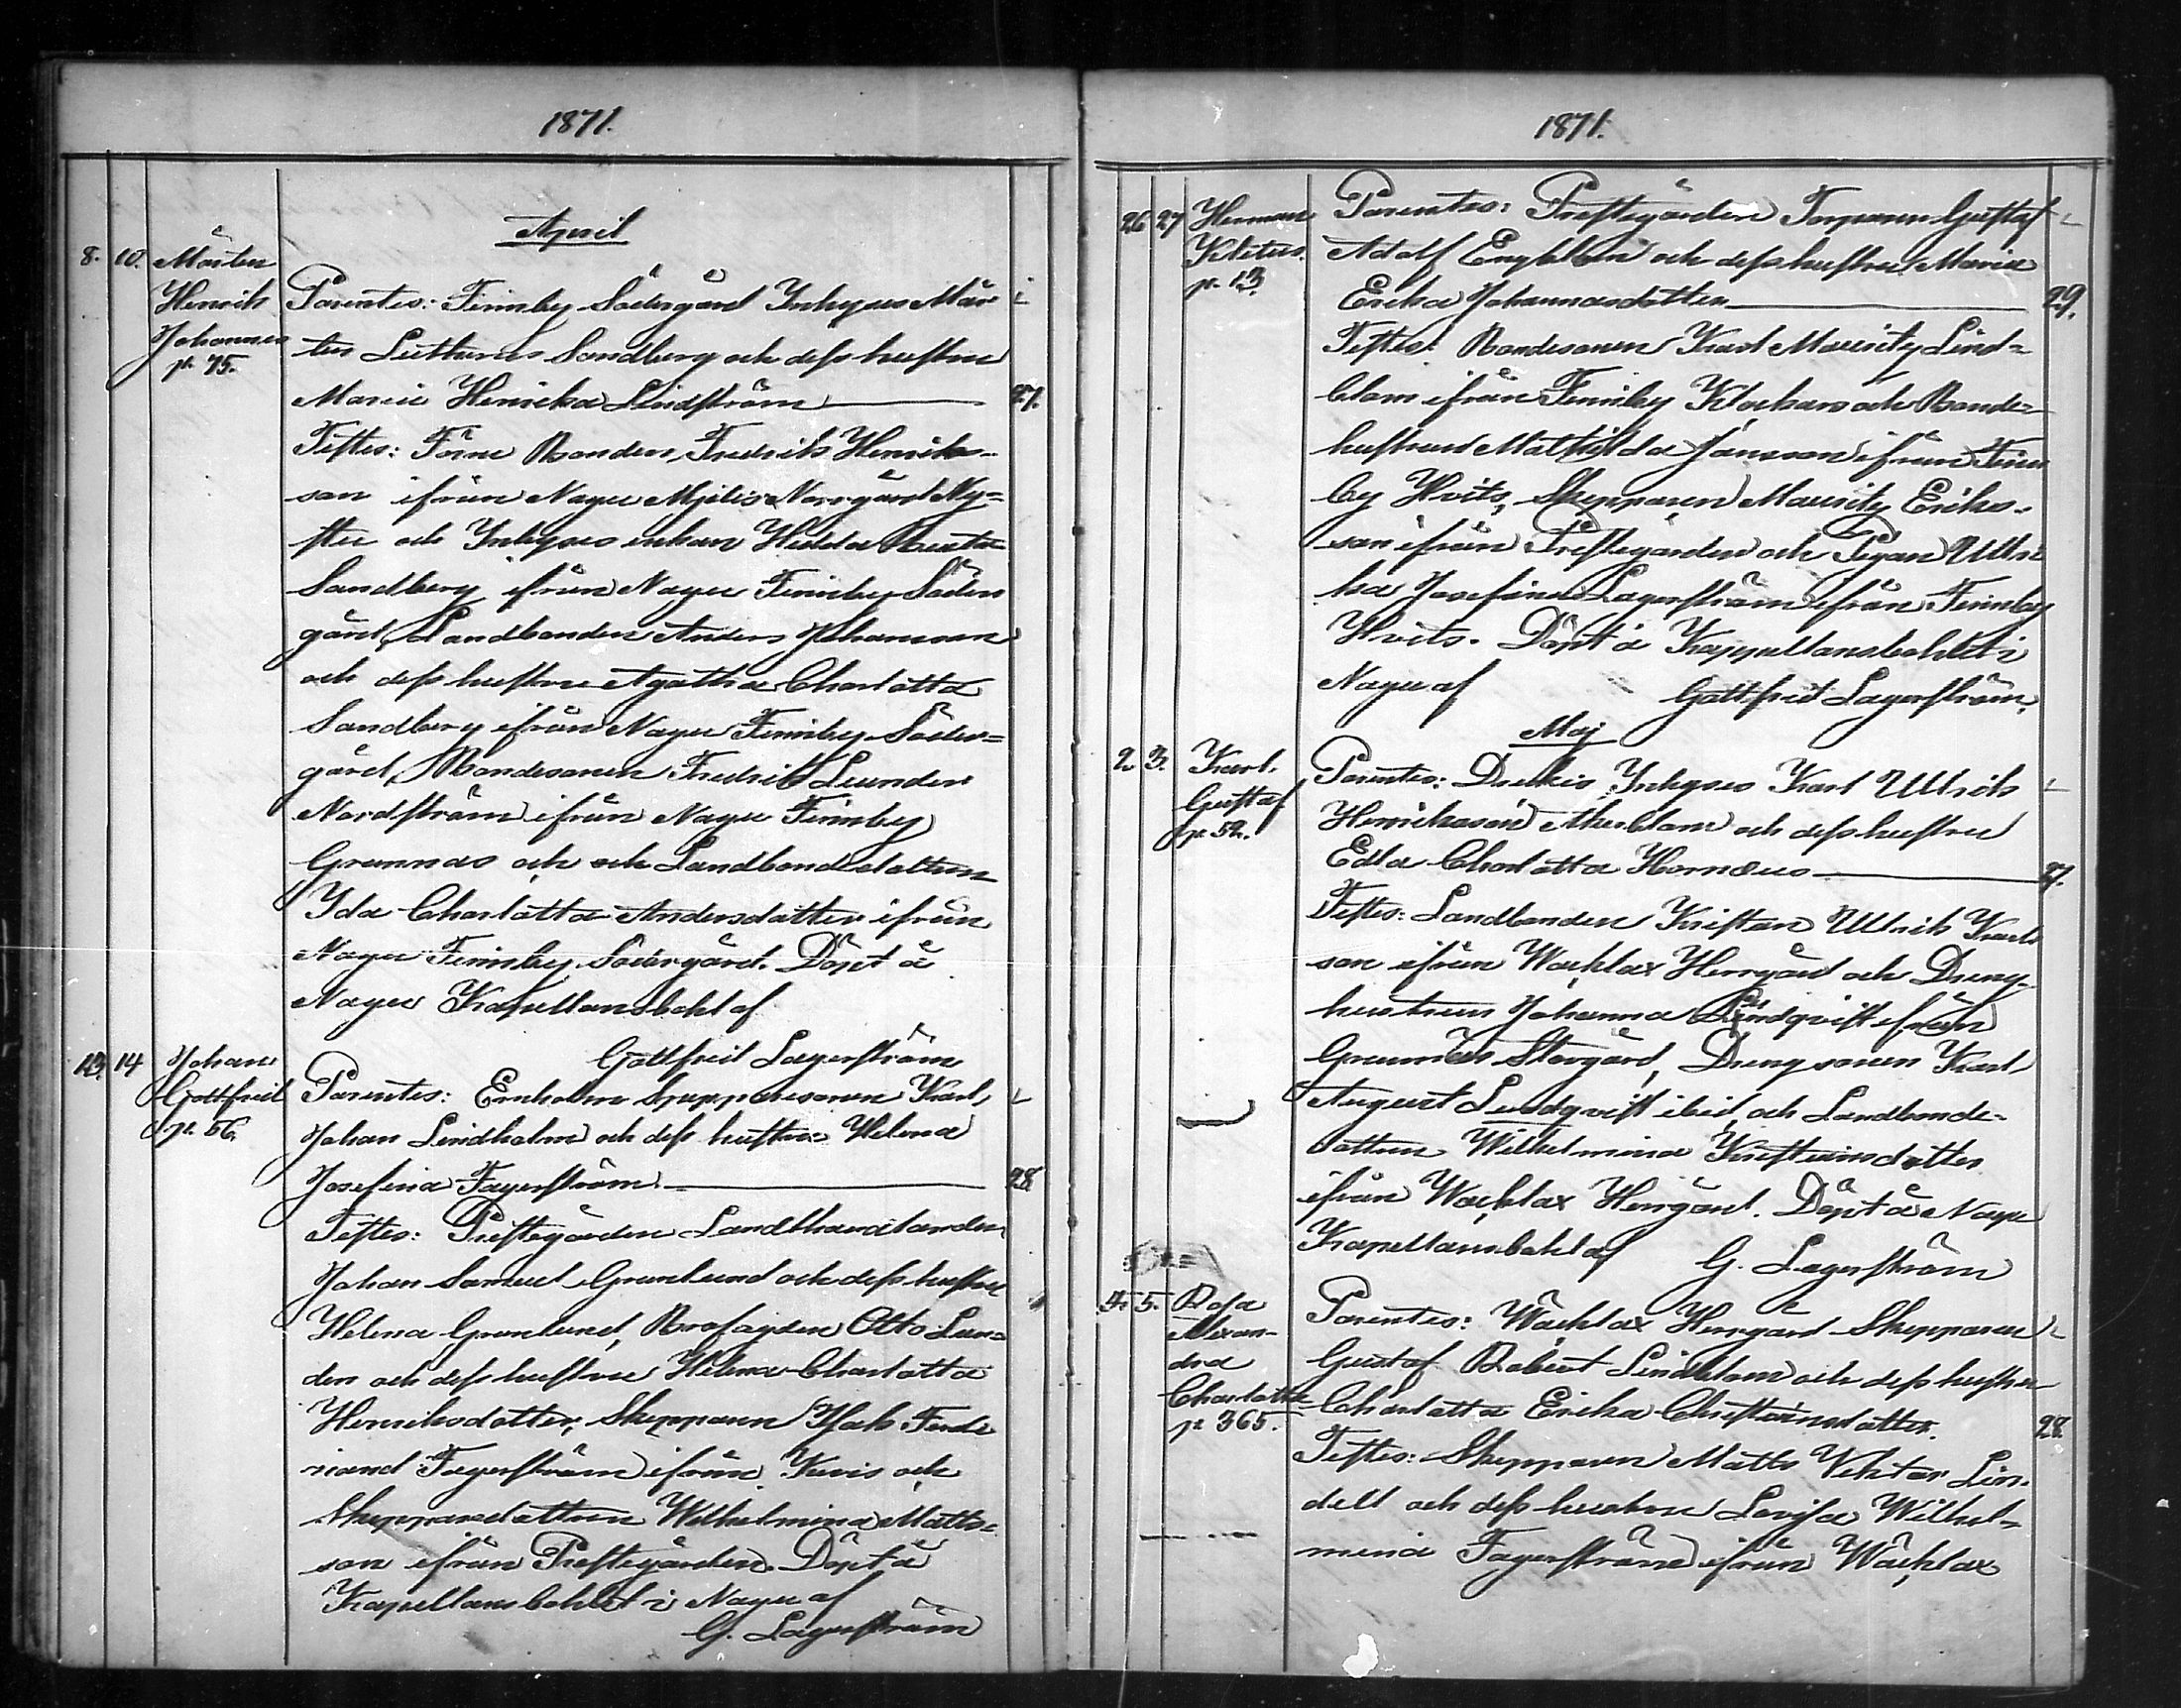 1871.
April
8. 10. Mårten
Henrik
Johannes
p. 75.
Parentes: Finnby Södergård Inhyses Mår
ten Lutherus Sandberg och dess hustru
Maria Henrika Lindström 27.
Testes: Förre Bonden Fredrik Henriks-
son ifrån Nagu Mjelis Norrgård Ny-
och Inhyses enkan Hedda
Sandberg ifrån Nagu Finnby Söder
gård, Landbonden Anders Johansson
och dess hustru Agatha Charlotta
Sandberg ifrån Nagu Finnby Söder-
gård, Bondesonen Fredrik Leander
Nordström ifrån Nagu Finnby
Grannas och och Landbondedottren
Ida Charlotta Andersdotter ifrån
Nagu Finnby Södergård. Döpt å
Nagu Kapellansbohl af
Gottfried Lagerström
13. 14 Johan
Gottfried
p. 56.
Parentes: Ernholm Skepparesonen Karl
Johan Lindholm och dess hustru Helena
Josefina Fagerström 28.
Testes: Prestegården Landthandlanden
Johan Samuel Granlund och dess hustru
Helena Granlund, Brofogden Otto Lun-
den och dess hustru Helena Charlotta
Henriksdotter, Skepparen Jak. Ferdi
nand Fagerström ifrån Kuvis och
Skepparedottren Wilhelmina Matts-
son ifrån Prestegården. Döpt å
Kapellansbohlet i Nagu af
G. Lagerström
1871.
26 27 Herman
Kletus
p. 13.
Parentes: Prestegården Torparen Gustaf
Adolf Engblom och dess hustru Maria
Erika Johannasdotter 29.
Testes: Bondesonen Karl Mauritz Lind-
blom ifrån Finnby Klockars och Bonde-
hustrun Mathilda Jansson ifrån Finn
by Hvits, Skepparen Mauritz Eriks-
son ifrån Prestegården och Pigan Ulri
ka Josefina Lagerström ifrån Finnby
Hvits. Döpt å Kappellansbohlet i
Nagu af Gottfried Lagerström.
Maj
2. 3. Karl
Gustaf
p. 52.
Parentes: Druckis Inhyses Karl Ullrik
Henriksson Akerblom och dess hustru
Edla Charlotta Hornæus 27.
Testes: Landbonden Kristian Ullrik Karls
son ifrån Wacklax Herrgård och Dreng-
hustrun Johanna Lindqvist ifrån
Grannäs Storgård, Drengsonen Karl
August Lindqvist ibid. och Landbonde-
dottren Wilhelmina Kristiansdotter
ifrån Wacklax Herrgård. Döpt å Nagu
Kapellansbohl af G. Lagerström
4. 5. Rosa
Alexan-
dra
Charlotta
p. 365.
Parentes: Wacklax Herrgård Skepparen
Gustaf Robert Lindblom och dess hustru
Charlotta Erika Christiansdotter. 28.
Testes: Skepparen Matts Viktor Lin-
dell och dess hustru Lovisa Wilhel-
mina Fagerström ifrån Wacklax